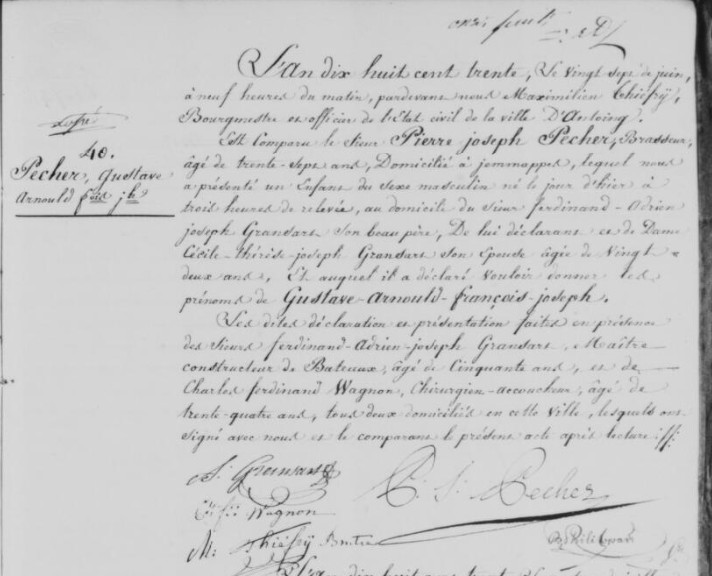 onze feuill
L'an dix huit cent trente, Le vingt sept de juin,
à neuf heures du matin, pardevant nous Maximilien Thiéfry,
Bourgmestre et officier de l'Etat civil de la ville D'Antoing.
Est Comparu le Sieur Pierre joseph Pecher, Brasseur,
âgé de trente-sept ans, Domicilié à jemmappes, lequel nous
a présenté un Enfant du Sexe masculin né le jour d'hier à
trois heures de relevée, au domicile du Sieur ferdinand-Adrien
joseph Gransart Son beau père, De lui déclarant et de Dame
Cécile-thérèse-joseph Gransart son Epouse âgée de Vingt
deux ans, Et auquel il a déclaré vouloir donner les
prénoms de Gustave-Arnould-françois-joseph.
Les dites déclaration et présentation faites en présence
des Sieurs ferdinand-Adrien-joseph Gransart, Maître
constructeur de Bateaux, âgé de Cinquante ans, et de
Charles ferdinand Wagnon, Chirurgien-accoucheur, âgé de
trente-quatre ans, tous deux domiciliés en cette Ville, lesquels ont
signé avec nous et le comparant le présent acte après lecture
40.
Pecher, Gustave
Arnould fois jh
Gransart
P. J. Pecher
Wagnon
M: Thiéfry Bmtre
L'an dix huit cent trente